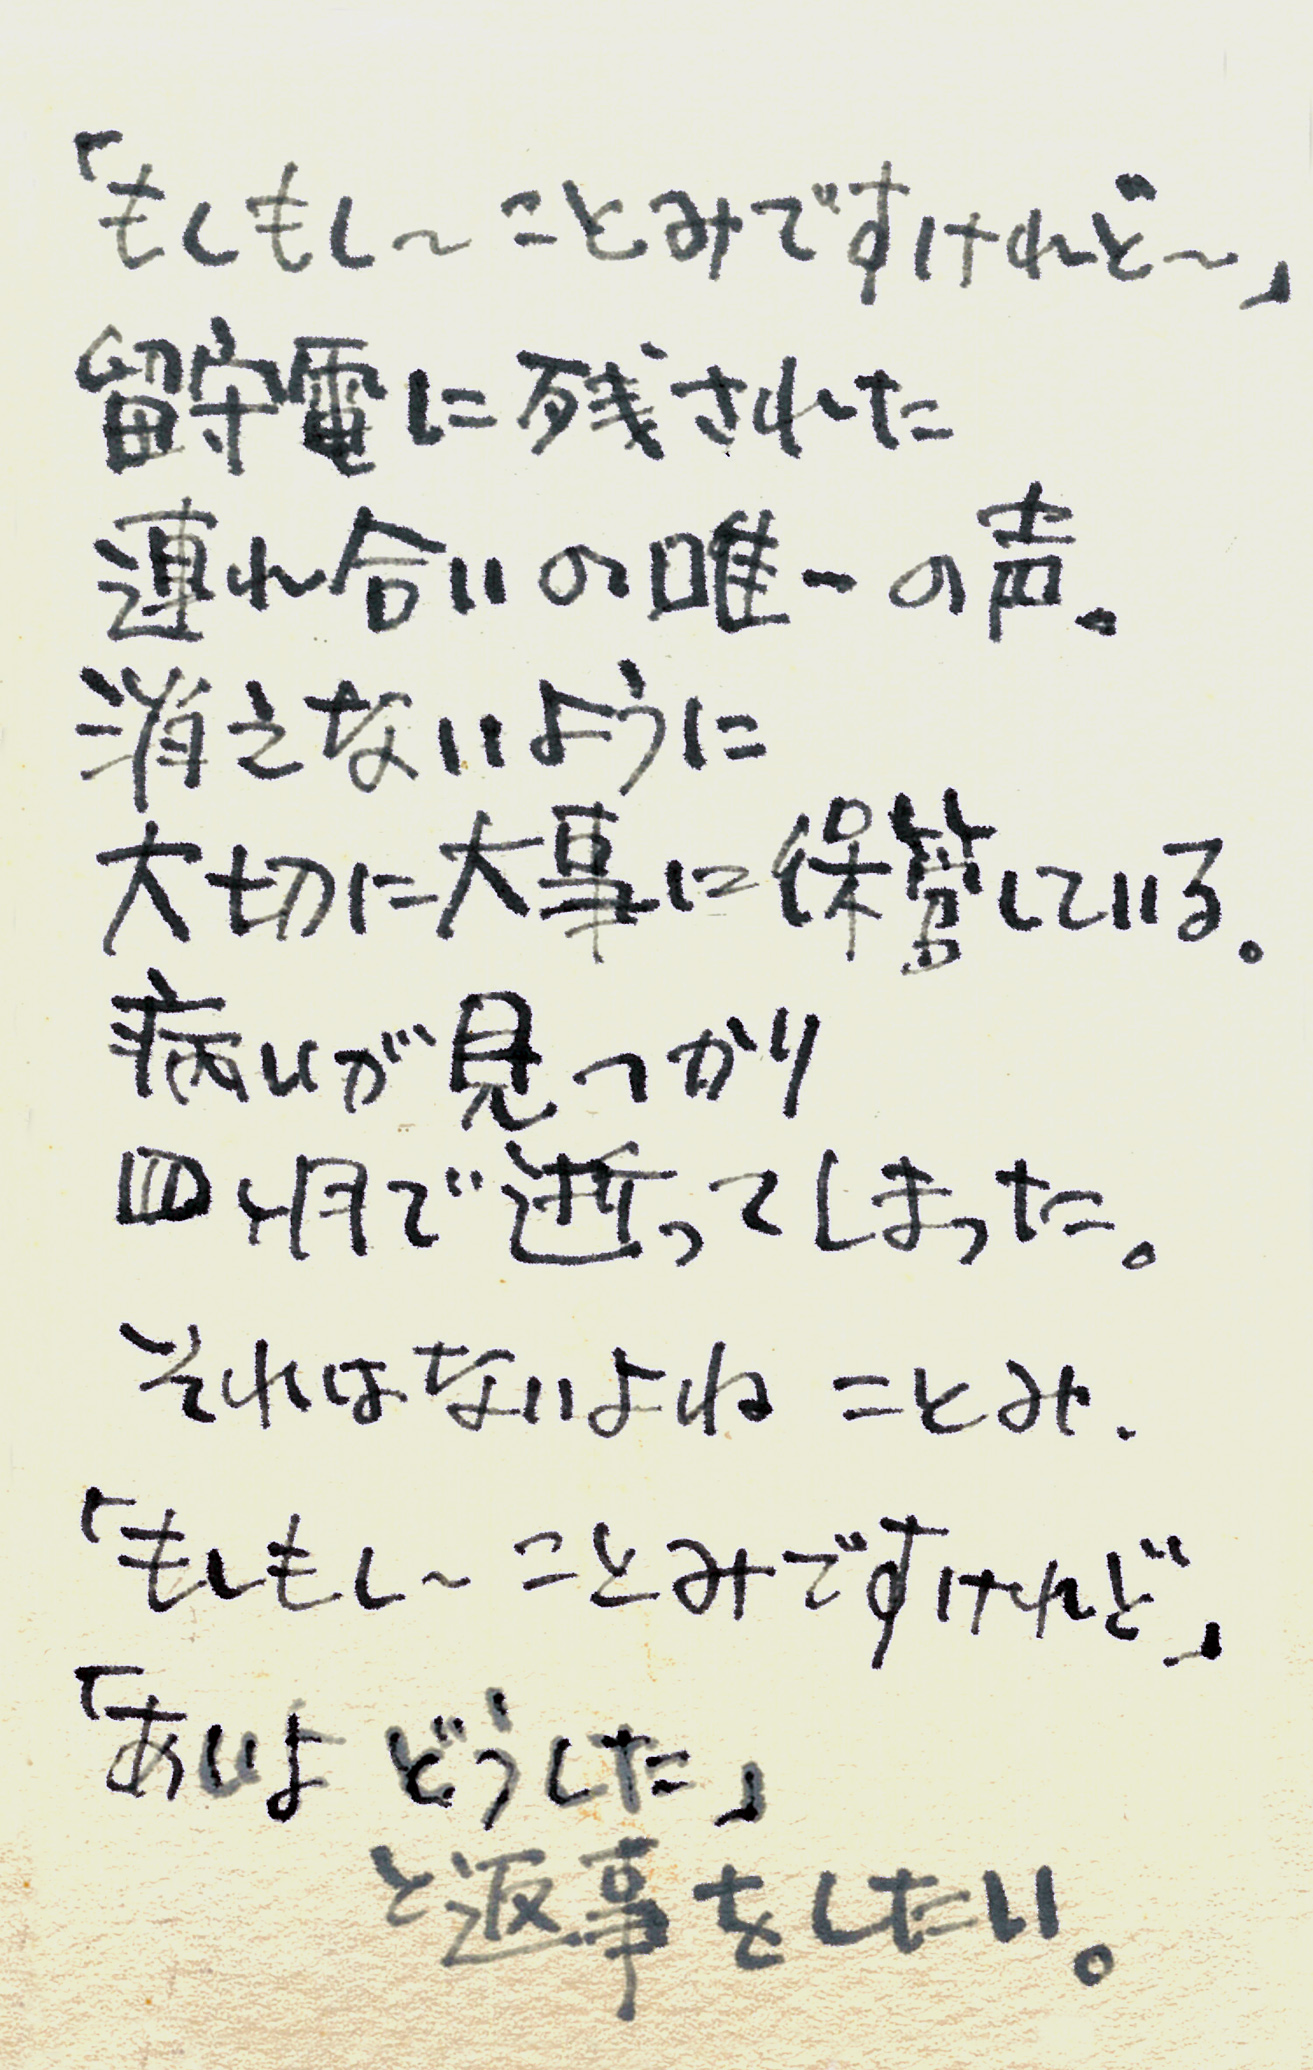 「もしもし〜ことみですけれど〜」
留守電に残された
連れ合いの唯一の声。
消えないように
大切に大事に保管している。
病いが見つかり
四ヶ月で逝ってしまった。
それはないよね ことみ.
「もしもし〜ことみですけれど」
「あいよ どうした」
と返事をしたい。